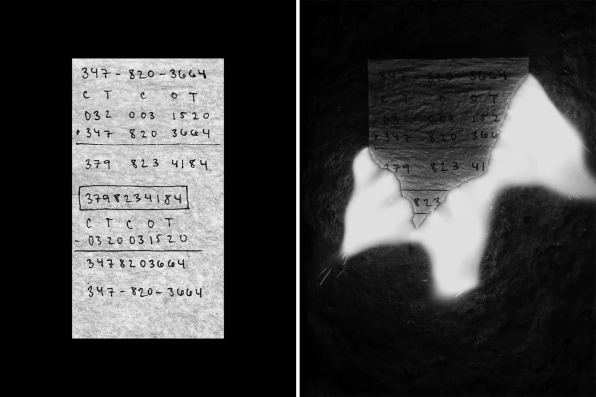 347-820-3664
C T C O T
032 003 1520
+347 820 3664
379 823 4184
3798234184
C T C O T
- 0320031520
3478203664
347-820-3664
347-820-3664
C T C O T
032 003 1520
+347 820 366
379 823 41
823